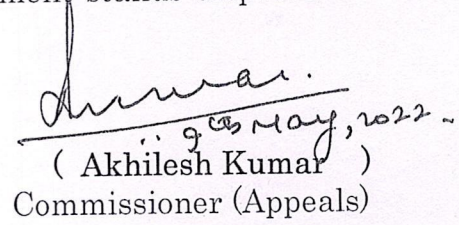 9th May, 2022.
( Akhilesh Kumar )
Commissioner (Appeals)